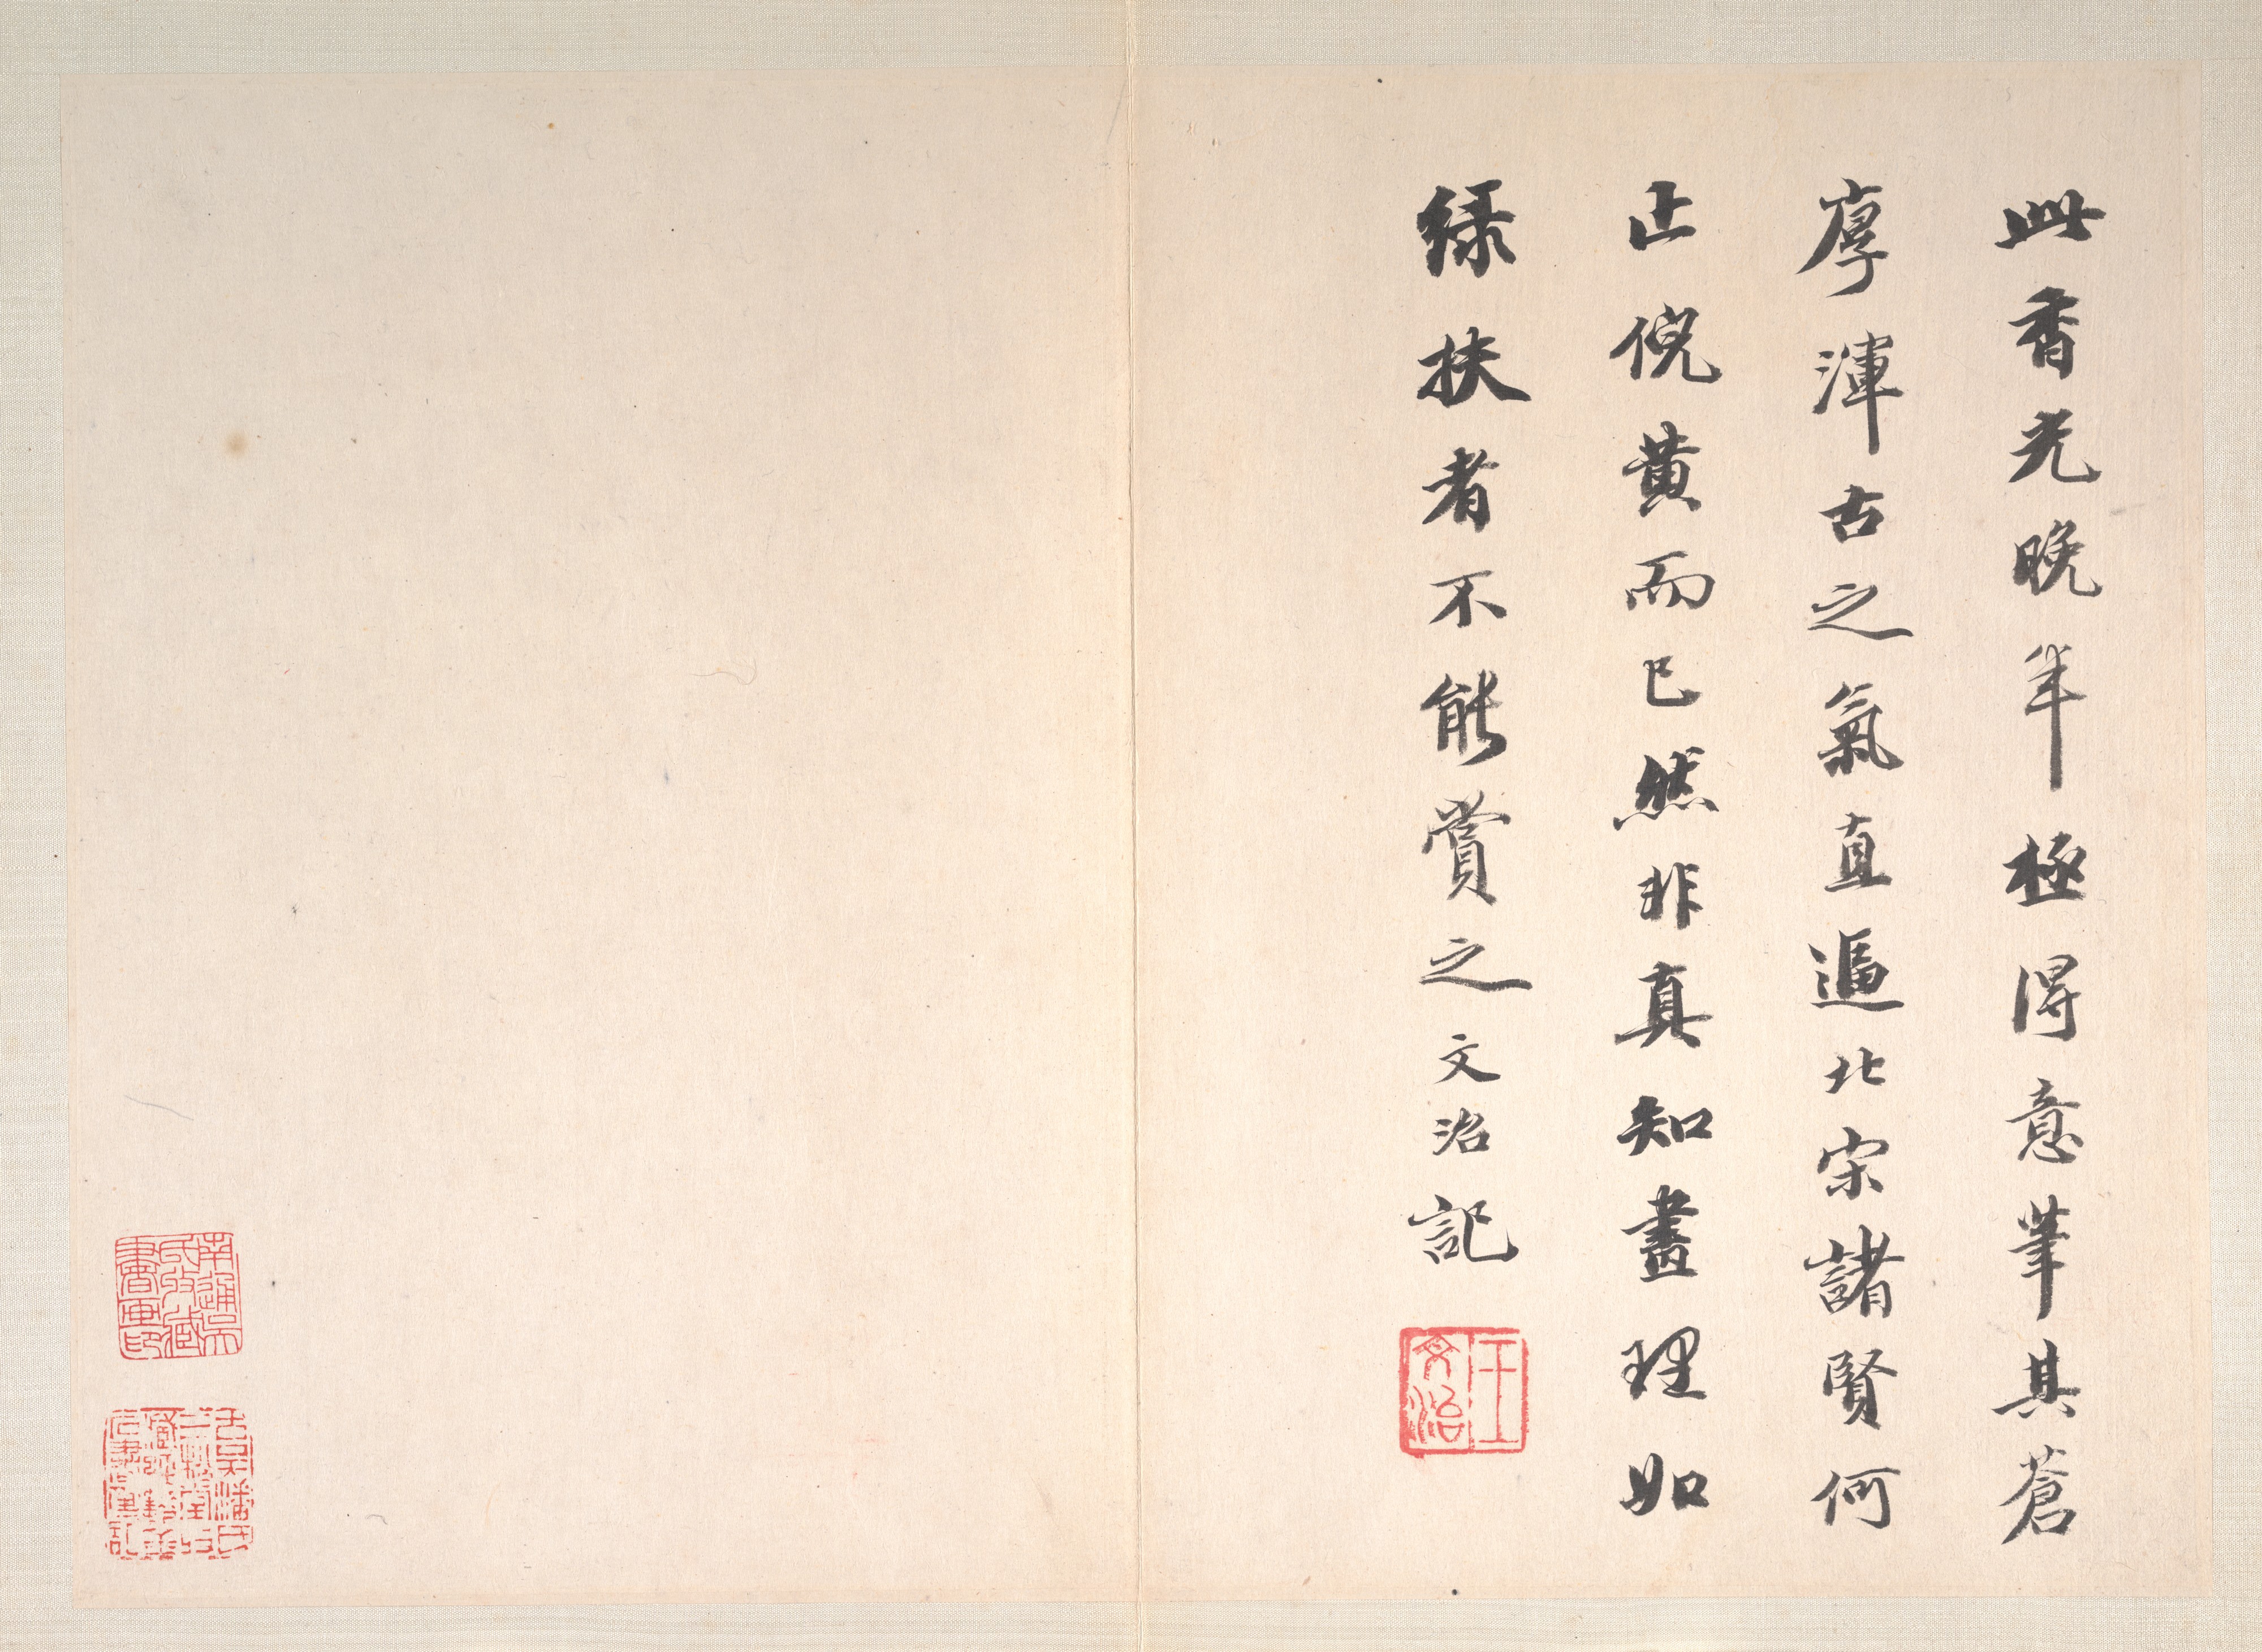 此香光晚年極得意筆其蒼
厚渾古之氣直逼北宋諸賢何
止倪黃而已然非真知畫理如
緑扶者不能賞之文治記
王文治
南通吳氏收藏書畫印